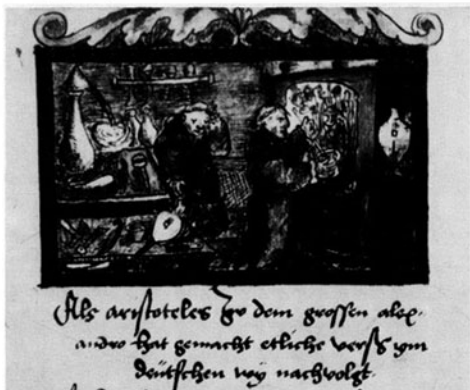 Als aristoteles zu dem grossen alex-
andro hat gemacht etliche verss ym
deutschen wy nachvolgt.